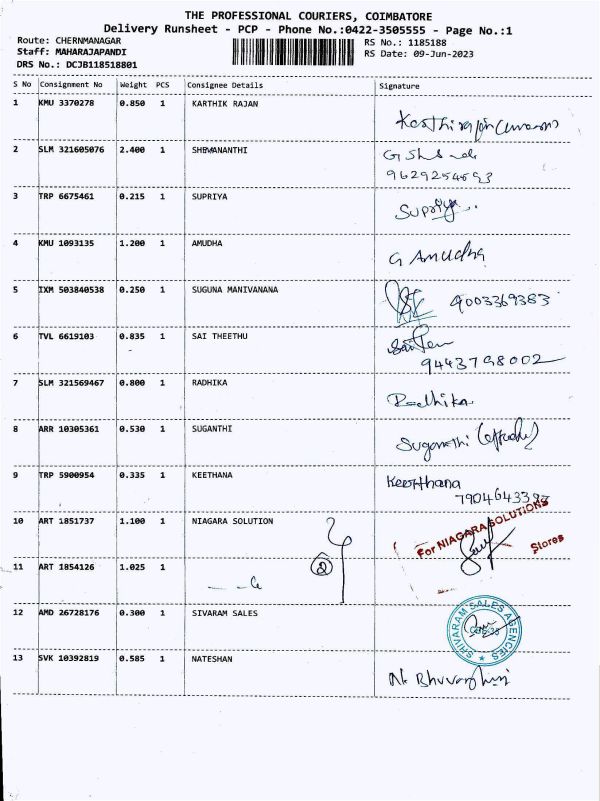 THE PROFESSIONAL COURIERS, COIMBATORE
Delivery Runsheet - PCP - Phone No.:0422-3505555 - Page No.:1
Route: CHERNMANAGAR
Staff: MAHARAJAPANDI
DRS No.: DCJB118518801
RS No.: 1185188
RS Date: 09-Jun-2023
S No Consignment No Weight PCS Consignee Details Signature
1 KMU 3370278 0.850 1 KARTHIK RAJAN
2 SLM 321605076 2.400 1 SHEWANANTHI
9629254593
3 TRP 6675461 0.215 1 SUPRIYA Supriya
4 KMU 1093135 1.200 1 AMUDHA G Amudha
5 IXM 503840538 0.250 1 SUGUNA MANIVANANA 9003369383
6 TVL 6619103 0.835 1 SAI THEETHU
9443798002
7 SLM 321569467 0.800 1 RADHIKA Radhika
8 ARR 10305361 0.530 1 SUGANTHI Suganthi
9 TRP 5900954 0.335 1 KEETHANA Keerthana
10 ART 1851737 1.100 1 NIAGARA SOLUTION For NIAGARA SOLUTIONS
Stores
11 ART 1854126 1.025 1 2
12 AMD 26728176 0.300 1 SIVARAM SALES SHIVARAM SALES AGENCIES
13 SVK 10392819 0.585 1 NATESHAN